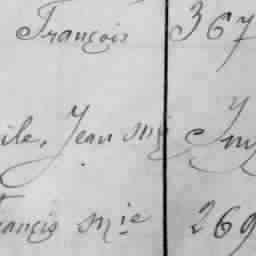 François 367
ile, Jean
ançis Mie 269